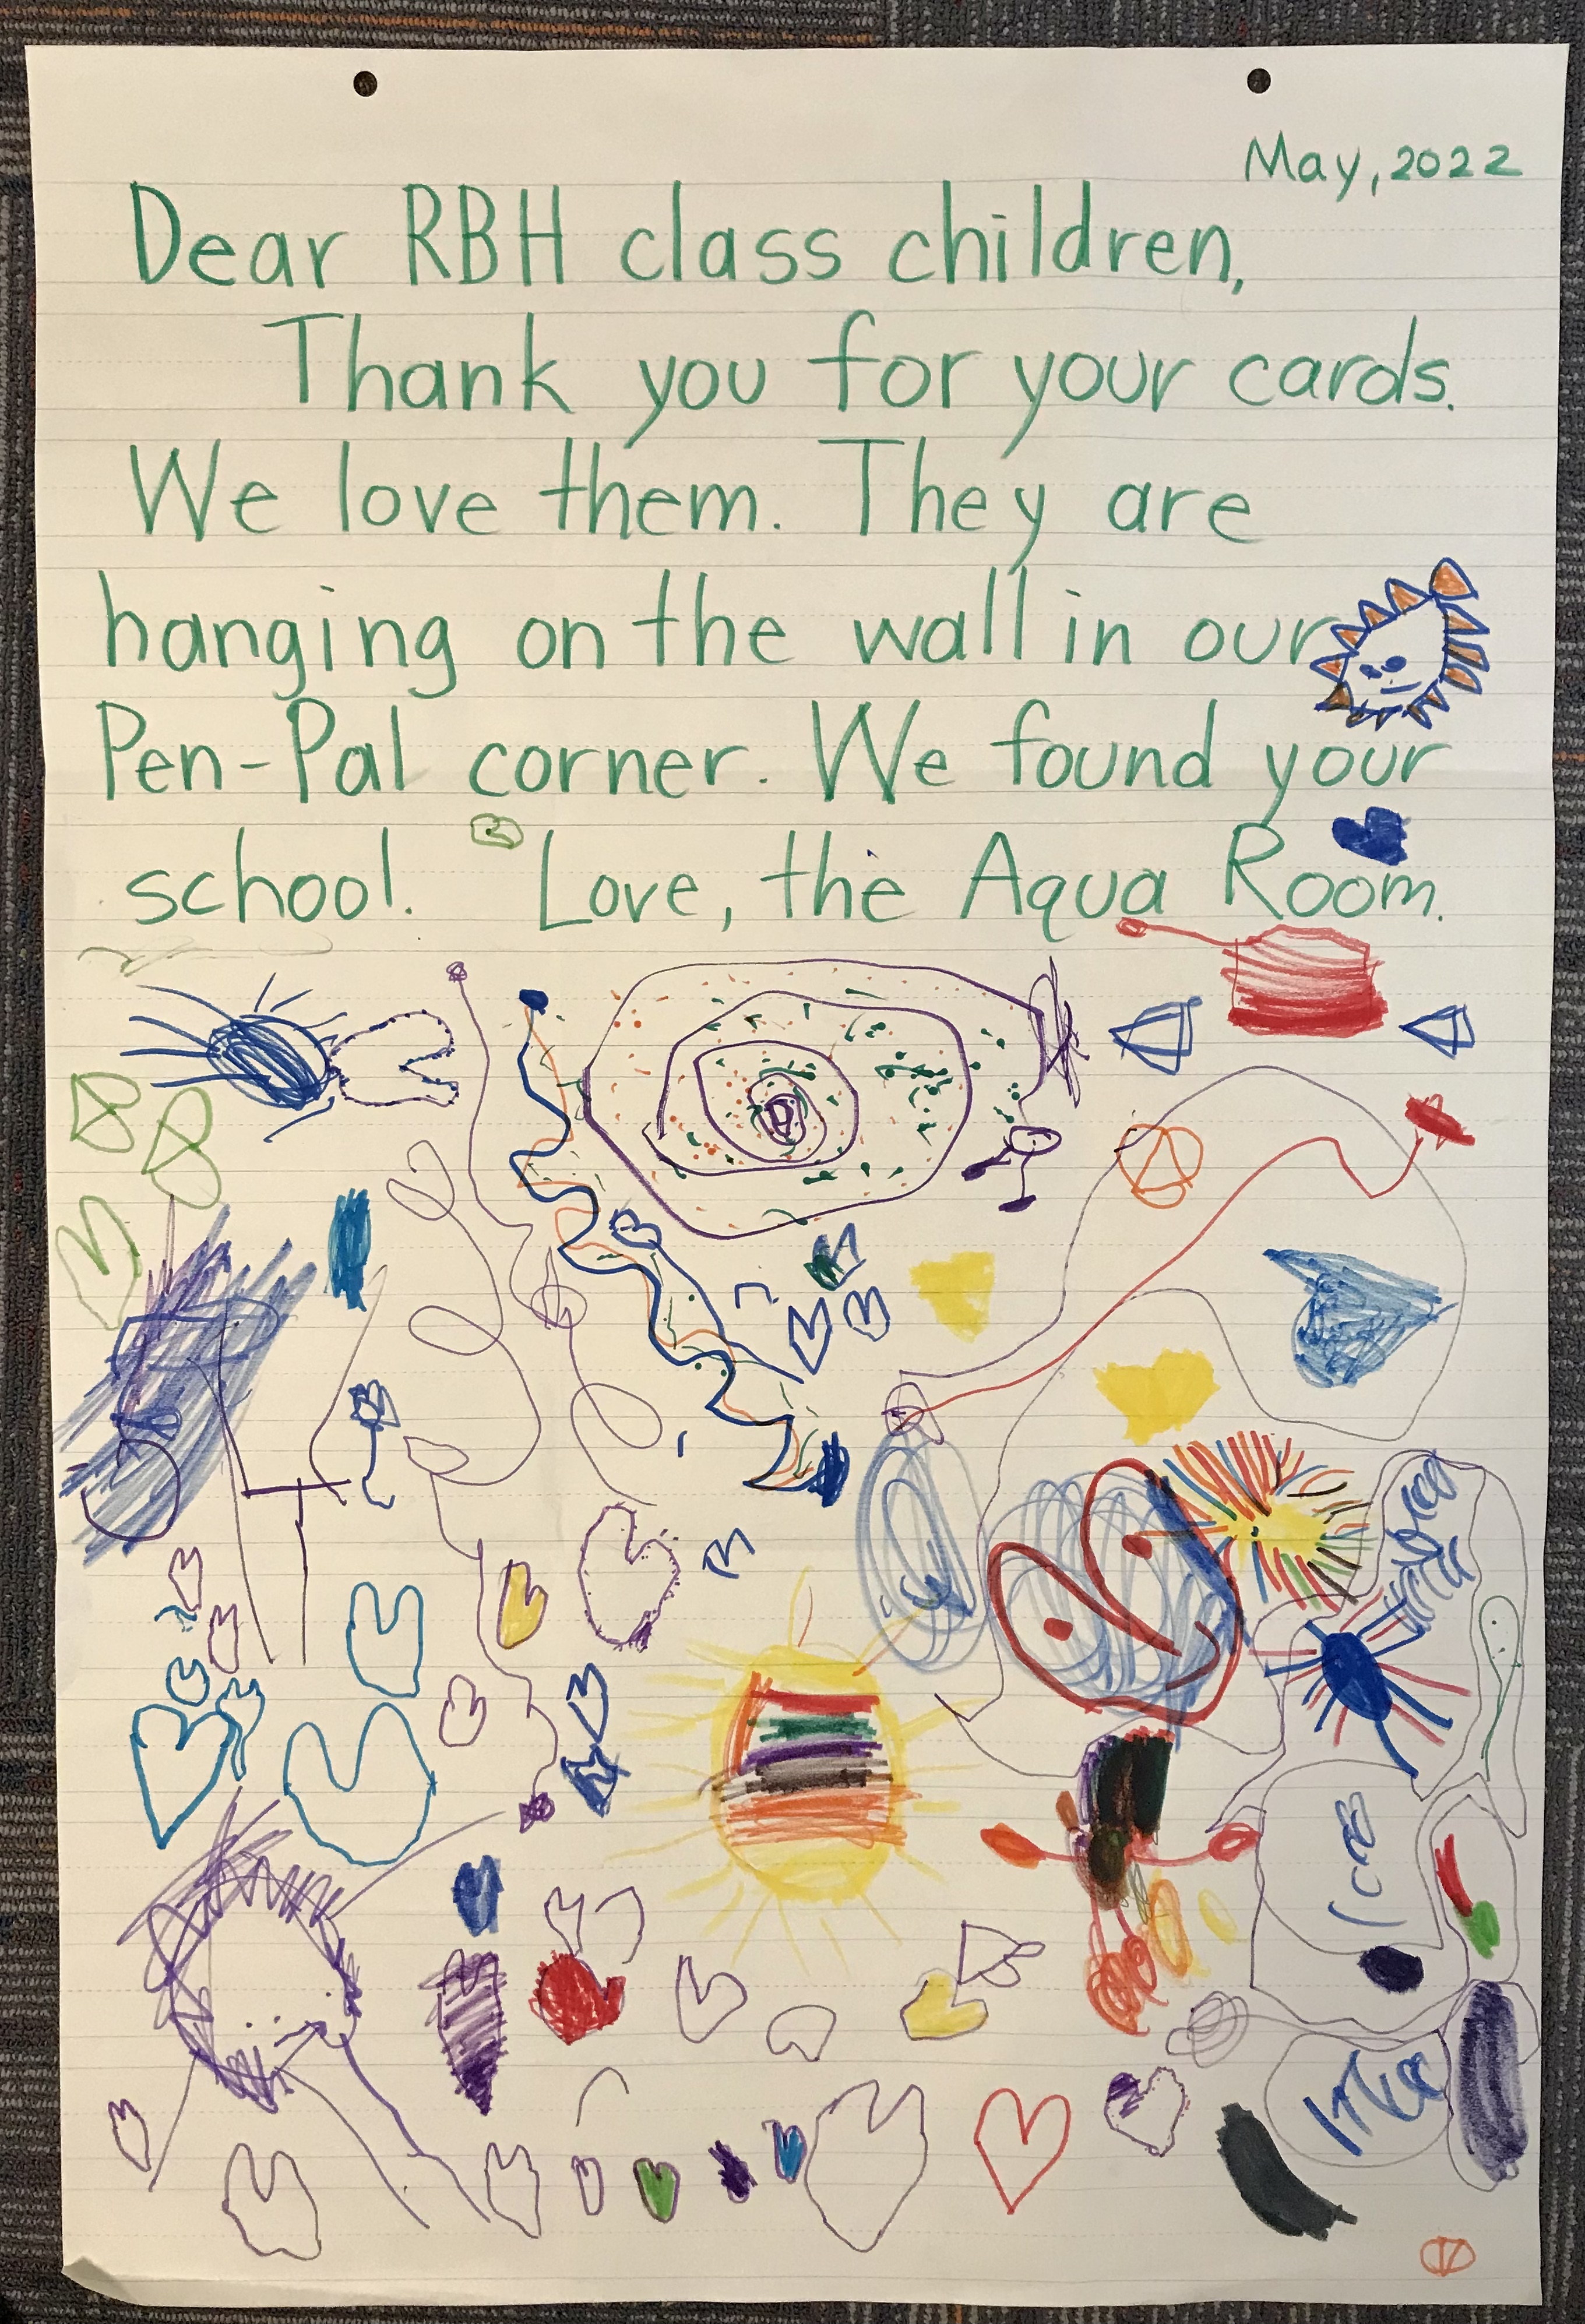 May, 2022
Dear RBH class children,
Thank you for your cards.
We love them. They are
hanging on the wall in our
Pen-Pal corner. We found your
school. Love, the Aqua Room.